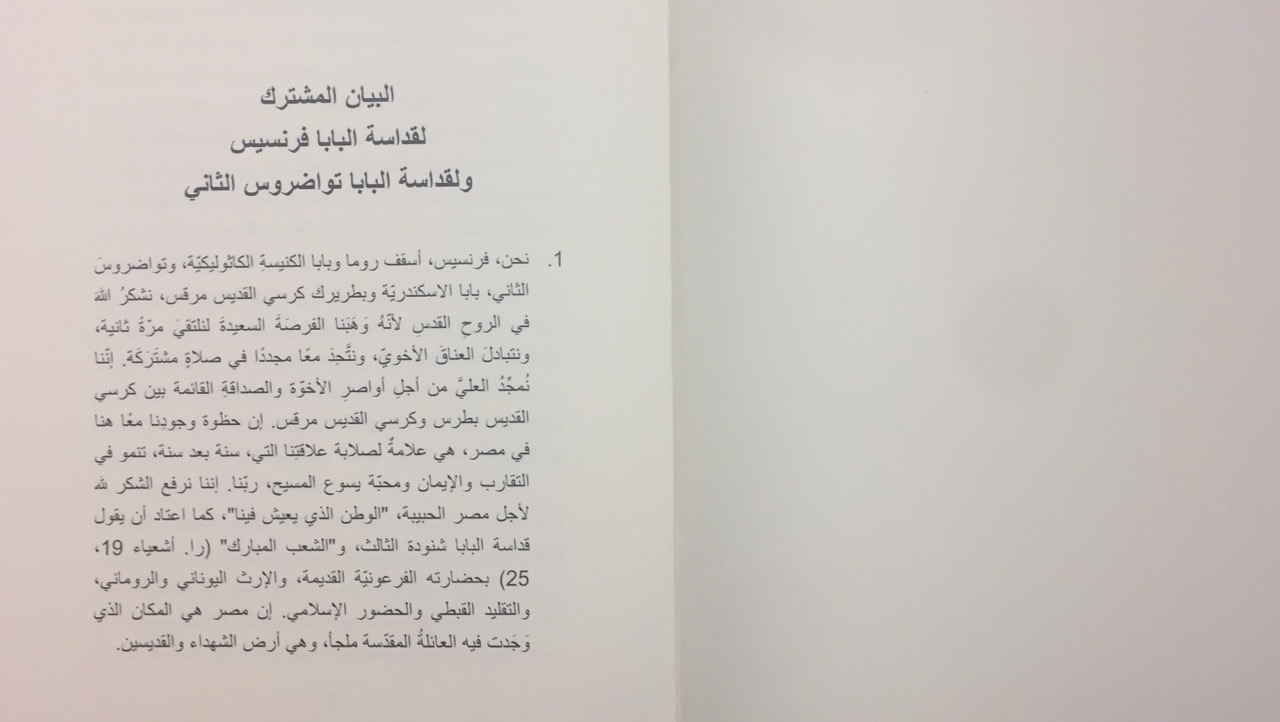 البيان المشترك
لقداسة البابا فرنسيس
ولقداسة البابا تواضروس الثاني
1. نحن، فرنسيس، أسقف روما وبابا الكنيسةِ الكاثوليكيّة، وتواضروسَ
الثاني، بابا الاسكندريّة وبطريرك كرسي القديس مرقس، نشكرُ اللهَ
في الروحِ القدسِ لأنّهُ وَهَبَنا الفرصَةَ السعيدةَ لنلتقيَ مرّةً ثانية،
ونتبادلَ العناقَ الأخويّ، ونتَّحِدَ معًا مجددًا في صلاةٍ مشتَرَكَة. إنّنا
نُمجِّدُ العليَّ من أجلِ أواصرِ الأخوّة والصداقةِ القائمة بين كرسي
القديس بطرس وكرسي القديس مرقس. إن حظوة وجودِنا معًا هنا
في مصر، هي علامةٌ لصلابة علاقتِنا التي، سنة بعد سنة، تنمو في
التقارب والإيمان ومحبّة يسوع المسيح، ربّنا. إننا نرفع الشكر لله
لأجل مصر الحبيبة، "الوطن الذي يعيش فينا"، كما اعتاد أن يقول
قداسة البابا شنودة الثالث، و"الشعب المبارك" (را. أشعياء 19،
25) بحضارته الفرعونيّة القديمة، والإرث اليوناني والروماني،
والتقليد القبطي والحضور الإسلامي. إن مصر هي المكان الذي
وَجَدت فيه العائلةُ المقدّسة ملجأ، وهي أرض الشهداء والقديسين.